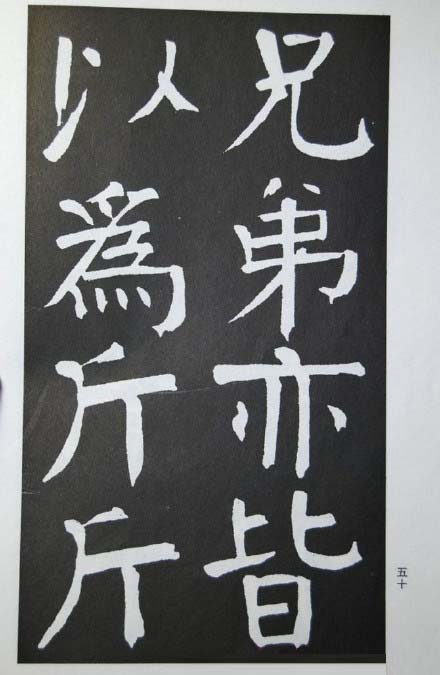 兄弟亦皆
以為斤斤
五十